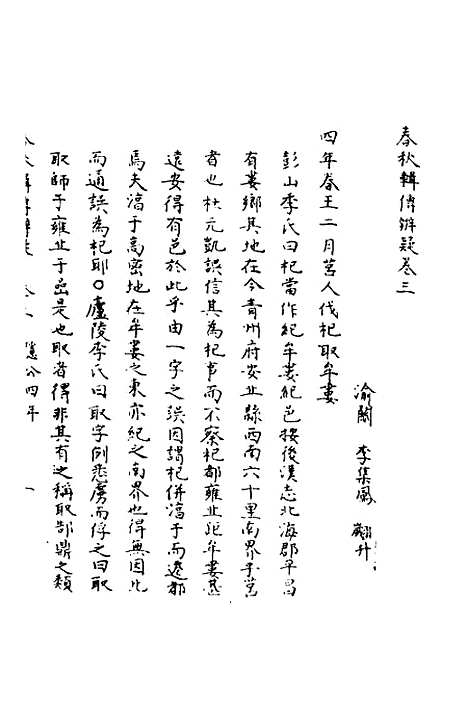 春秋輯傳辨疑卷三
渝關 李集鳳 翽升
四年春王二月莒人伐杞取牟婁
彭山李氏曰杞當作紀牟婁紀邑按後漢志北海郡平昌
有婁鄉其地在今青州府安丘縣西南六十里南界于莒
者也杜元凱誤信其為杞事而不察杞都雍丘距牟婁甚
遠安得有邑於此乎由一字之誤因謂杞併淳于而遷都
焉夫淳于高密地在牟婁之東亦紀之南界也得無因此
而通誤為杞耶○廬陵李氏曰取字例悉虜而俘之曰取
取師于雍丘于嵒是也取者得非其有之稱取郜鼎之類
春秋輯傳辨疑 卷 隱公四年 一